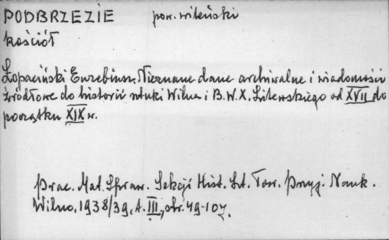 PODBRZEZIE pow. wileński
kościół
Łopaciński Euzebiusz. Nieznane dane archiwalne i wiadomości
źródłowe do historii sztuki Wilna i B.W.X. Litewskiego od XVII do
początku XIX w.
Prac. Mat. Spraw. Sekcji Hist. Szt. Tow. Przyj. Nauk.
Wilno, 1938/39, t. III, str. 49-107.